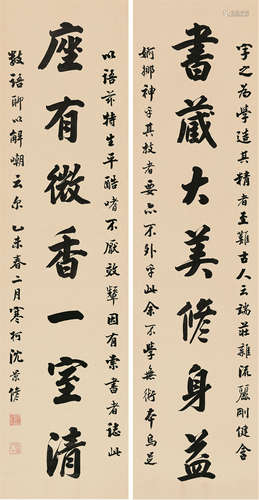 字之為學造其精者至難古人云端莊雜流麗剛健含
書藏大美脩身益
婀娜神乎其技者要亦不外乎此余不學無術本烏足
以語茲特生平酷嗜不厭效顰因有索書者誌此
座有微香一室清
數語聊以解嘲云尔乙未春二月寒柯沈景脩